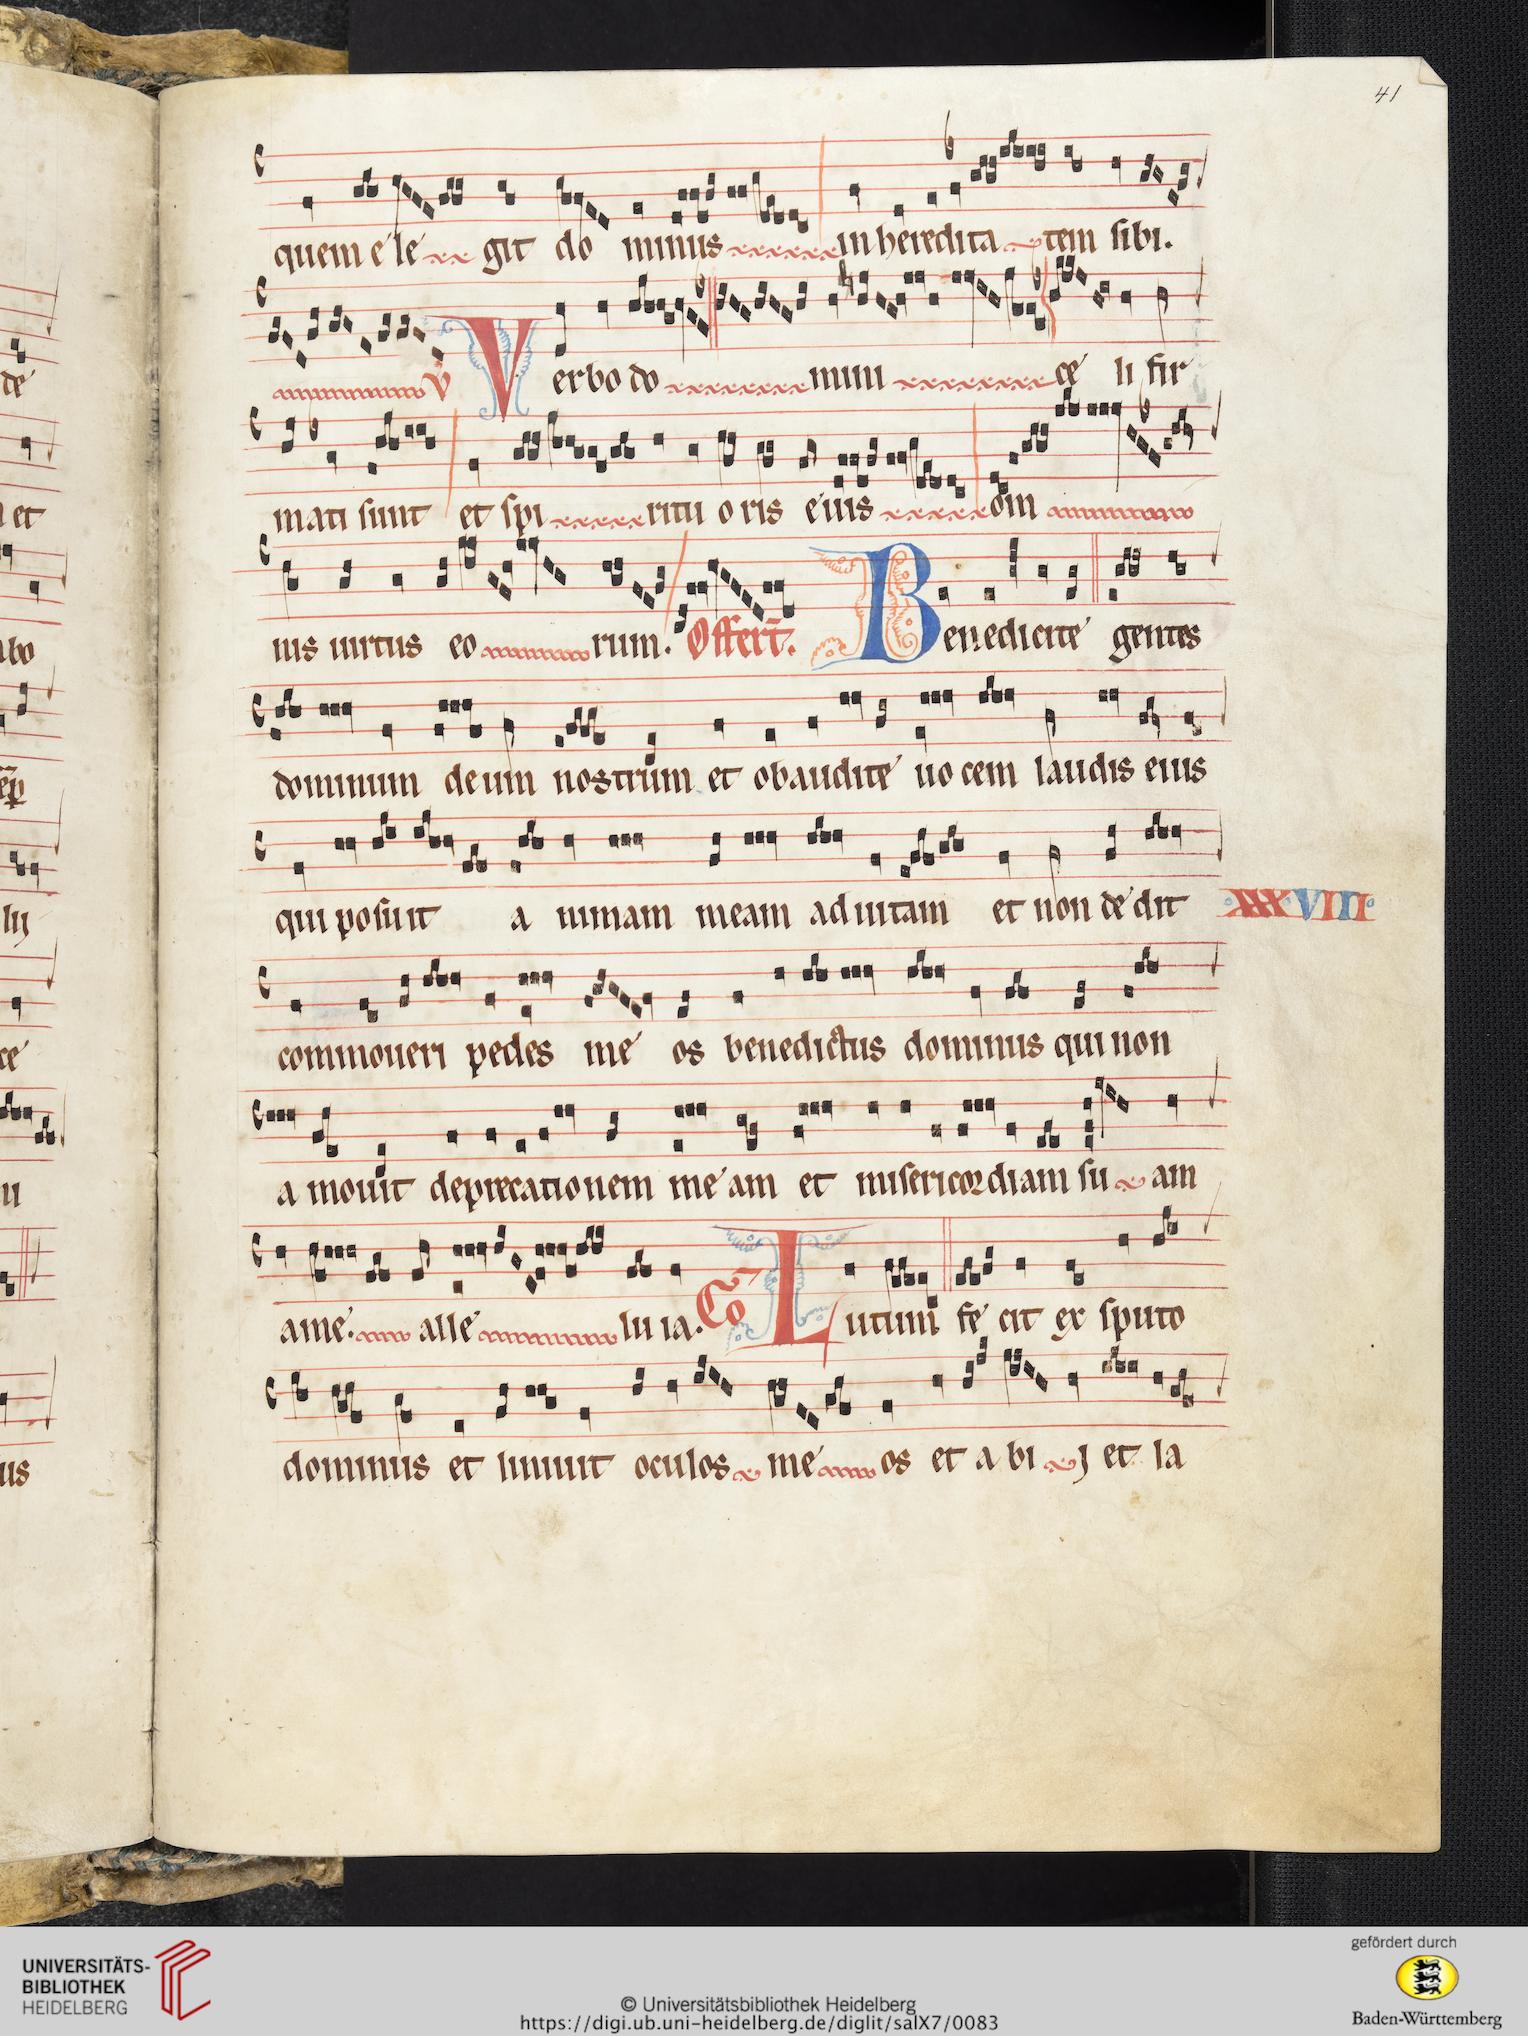 41
quem e le git do minus in heredita tem sibi.
V Verbo do mini ce li fir
mati sunt et spi ritu o ris e ius om
nis uirtus eo rum. Offert. Benedicite gentes
dominum deum nostrum et obaudite uo cem laudis eius
qui posuit a nimam meam ad uitam et non de dit
XXXVIII
commoueri pedes me os benedictus dominus qui non
a mouit deprecationem me am et misericordiam su am
a me. alle lu ia. Co Lutum fe cit ex sputo
dominus et liniuit oculos me os et a bi j et la
de
n et
abo
lij
ce
u
us
UNIVERSITÄTS-
BIBLIOTHEK
HEIDELBERG
© Universitätsbibliothek Heidelberg
https://digi.ub.uni-heidelberg.de/diglit/salX7/0083
gefördert durch
Baden-Württemberg